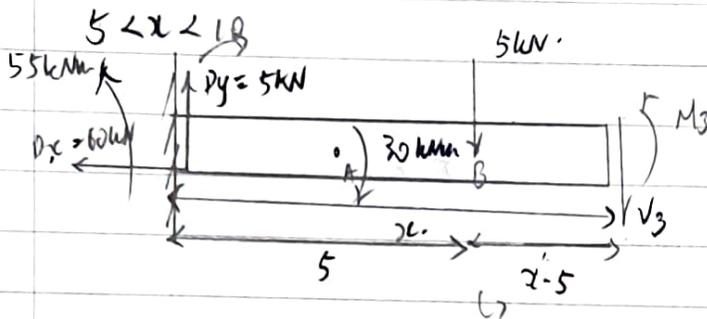 5 < x < 10
5kN.
55kNm
Dy = 5kN
Dx = 60kN
30 kNm
M3
A
B
V3
x.
5
x-5